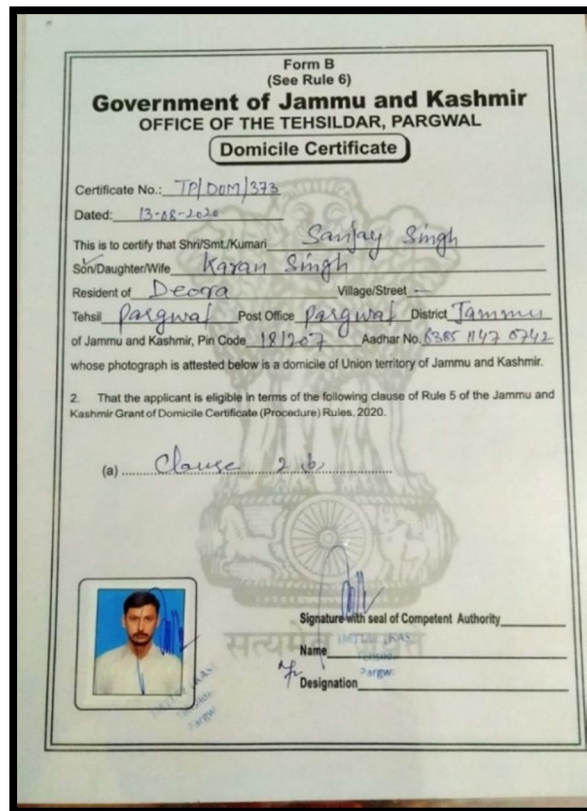 Form B
(See Rule 6)
Government of Jammu and Kashmir
OFFICE OF THE TEHSILDAR, PARGWAL
Domicile Certificate
Certificate No.: TP/DOM/373
Dated: 13-08-2020
This is to certify that Shri/Smt./Kumari Sanjay Singh
Son/Daughter/Wife Karan Singh
Resident of Deora Village/Street —
Tehsil Pargwal Post Office Pargwal District Jammu
of Jammu and Kashmir, Pin Code 181207 Aadhar No. 6385 1147 0742
whose photograph is attested below is a domicile of Union territory of Jammu and Kashmir.
2. That the applicant is eligible in terms of the following clause of Rule 5 of the Jammu and
Kashmir Grant of Domicile Certificate (Procedure) Rules, 2020.
(a) Clause 2
Signature with seal of Competent Authority
सत्यमेव
Name
Designation